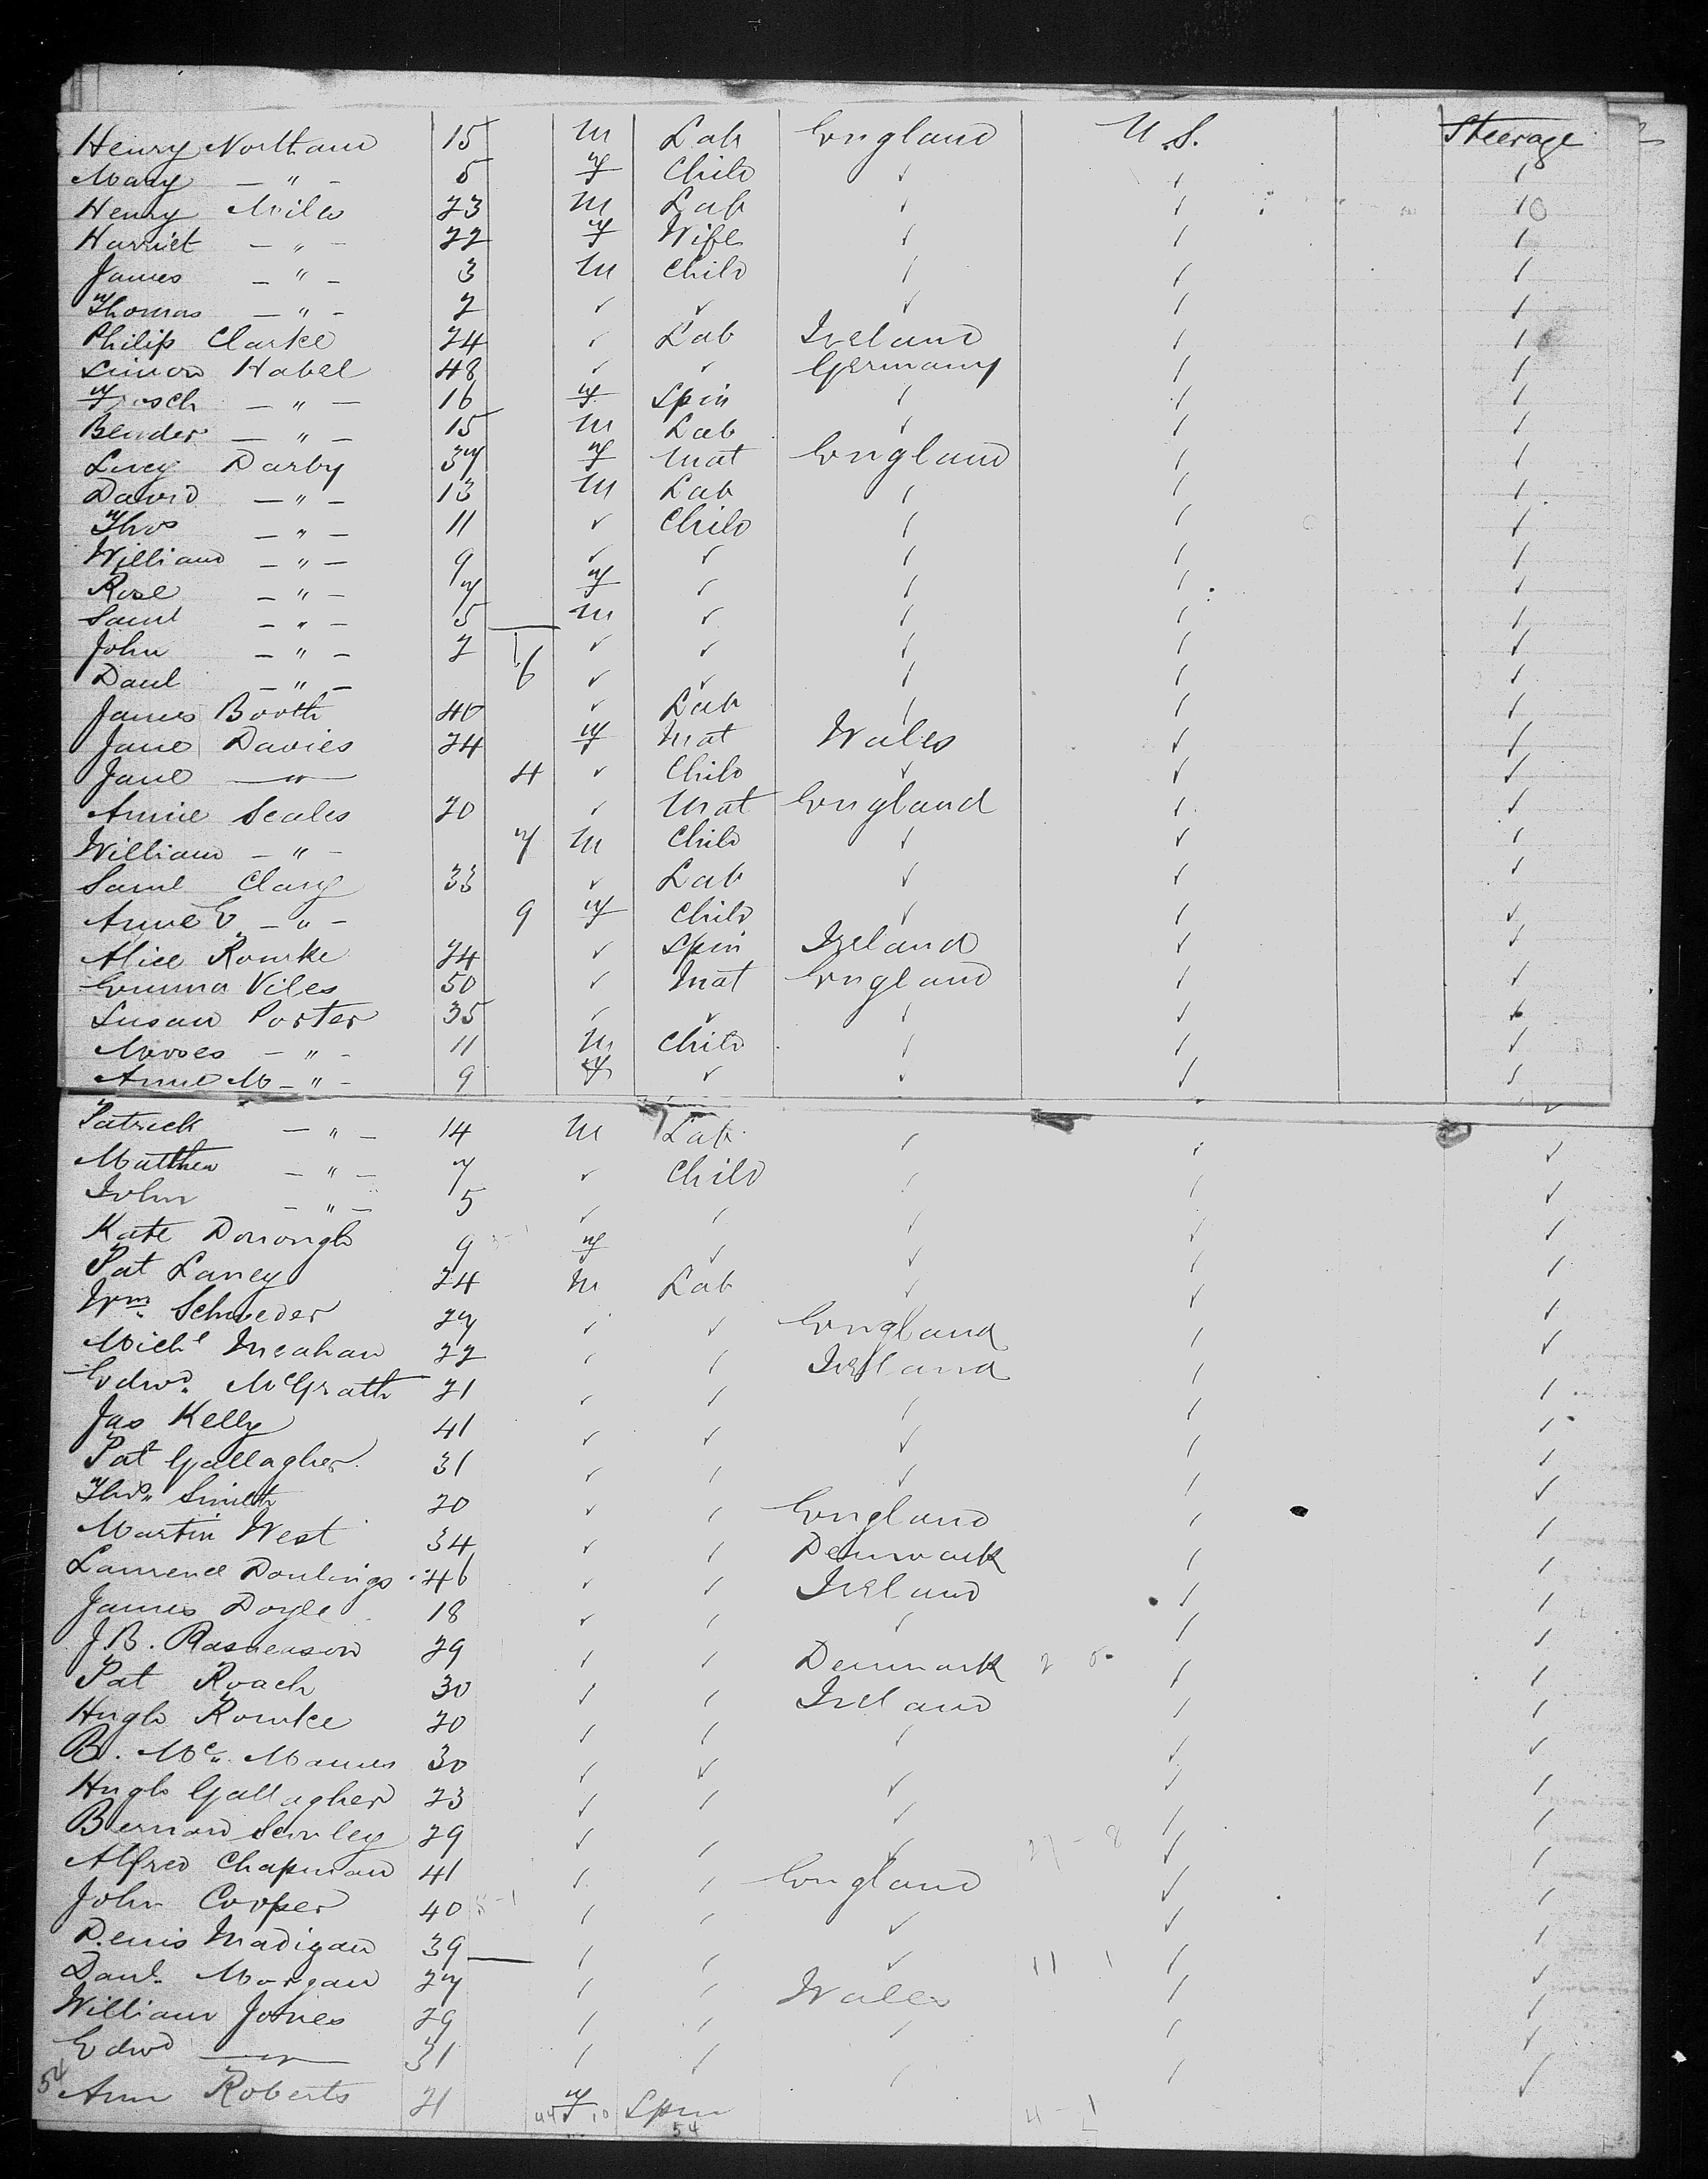 Henry Northam 15 M Lab England U.S. Steerage
Mary — " — 5 F Child ✓ ✓ ✓
Henry Miles 23 M Lab ✓ ✓ ✓
Harriet — " — 22 F Wife ✓ ✓ ✓
James — " — 3 M Child ✓ ✓ ✓
Thomas — " — 2 ✓ ✓ ✓ ✓ ✓
Philip Clarke 24 ✓ Lab Ireland ✓ ✓
Simon Habel 48 ✓ ✓ Germany ✓ ✓
— " — 16 F Spin ✓ ✓ ✓
Bender — " — 15 M Lab ✓ ✓ ✓
Lucy Darby 37 F Mat England ✓ ✓
David — " — 13 M Lab ✓ ✓ ✓
Thos — " — 11 ✓ Child ✓ ✓ ✓
William — " — 9 ✓ ✓ ✓ ✓ ✓
Rose — " — 7 F ✓ ✓ ✓ ✓
Saml — " — 5 M ✓ ✓ ✓ ✓
John — " — 2 ✓ ✓ ✓ ✓ ✓
Danl — " — 6 ✓ ✓ ✓ ✓ ✓
James Booth 40 ✓ Lab ✓ ✓ ✓
Jane Davies 24 F Mat Wales ✓ ✓
Jane — " — 4 ✓ Child ✓ ✓ ✓
Annie Scales 20 ✓ Mat England ✓ ✓
William — " — 7 M Child ✓ ✓ ✓
Saml Clary 33 ✓ Lab ✓ ✓ ✓
Anne E. — " — 9 F Child ✓ ✓ ✓
Alice Rourke 24 ✓ Spin Ireland ✓ ✓
Emma Viles 50 ✓ Mat England ✓ ✓
Susan Porter 35 ✓ ✓ ✓ ✓ ✓
Moses — " — 11 M Child ✓ ✓ ✓
Anne M — " — 9 F ✓ ✓ ✓ ✓
Patrick — " — 14 M Lab ✓ ✓ ✓
Matthew — " — 7 ✓ Child ✓ ✓ ✓
John — " — 5 ✓ ✓ ✓ ✓ ✓
Kate Donough 9 F ✓ ✓ ✓ ✓
Pat Laney 24 M Lab ✓ ✓ ✓
Wm. Schweder 27 ✓ ✓ England ✓ ✓
Michl Meahan 22 ✓ ✓ Ireland ✓ ✓
Edwd. McGrath 21 ✓ ✓ ✓ ✓ ✓
Jas Kelly 41 ✓ ✓ ✓ ✓ ✓
Pat Gallagher 31 ✓ ✓ ✓ ✓ ✓
Thos. Smith 20 ✓ ✓ England ✓ ✓
Martin West 34 ✓ ✓ Denmark ✓ ✓
Laurence Dowlings 46 ✓ ✓ Ireland ✓ ✓
James Doyle 18 ✓ ✓ ✓ ✓ ✓
J.B. 29 ✓ ✓ Denmark ✓ ✓
Pat Roach 30 ✓ ✓ Ireland ✓ ✓
Hugh Rourke 20 ✓ ✓ ✓ ✓ ✓
B. Mc. Manus 30 ✓ ✓ ✓ ✓ ✓
Hugh Gallagher 23 ✓ ✓ ✓ ✓ ✓
Bernard 29 ✓ ✓ ✓ ✓ ✓
Alfred Chapman 41 ✓ ✓ England ✓ ✓
John Cooper 40 ✓ ✓ ✓ ✓ ✓
Denis Madigan 39 — ✓ ✓ ✓ 11 1 ✓ ✓
Danl. Morgan 27 ✓ ✓ Wales ✓ ✓
William Jones 29 ✓ ✓ ✓ ✓ ✓
Edwd — " — 31 ✓ ✓ ✓ ✓ ✓
54 Ann Roberts 21 F Spin ✓
44 10 54